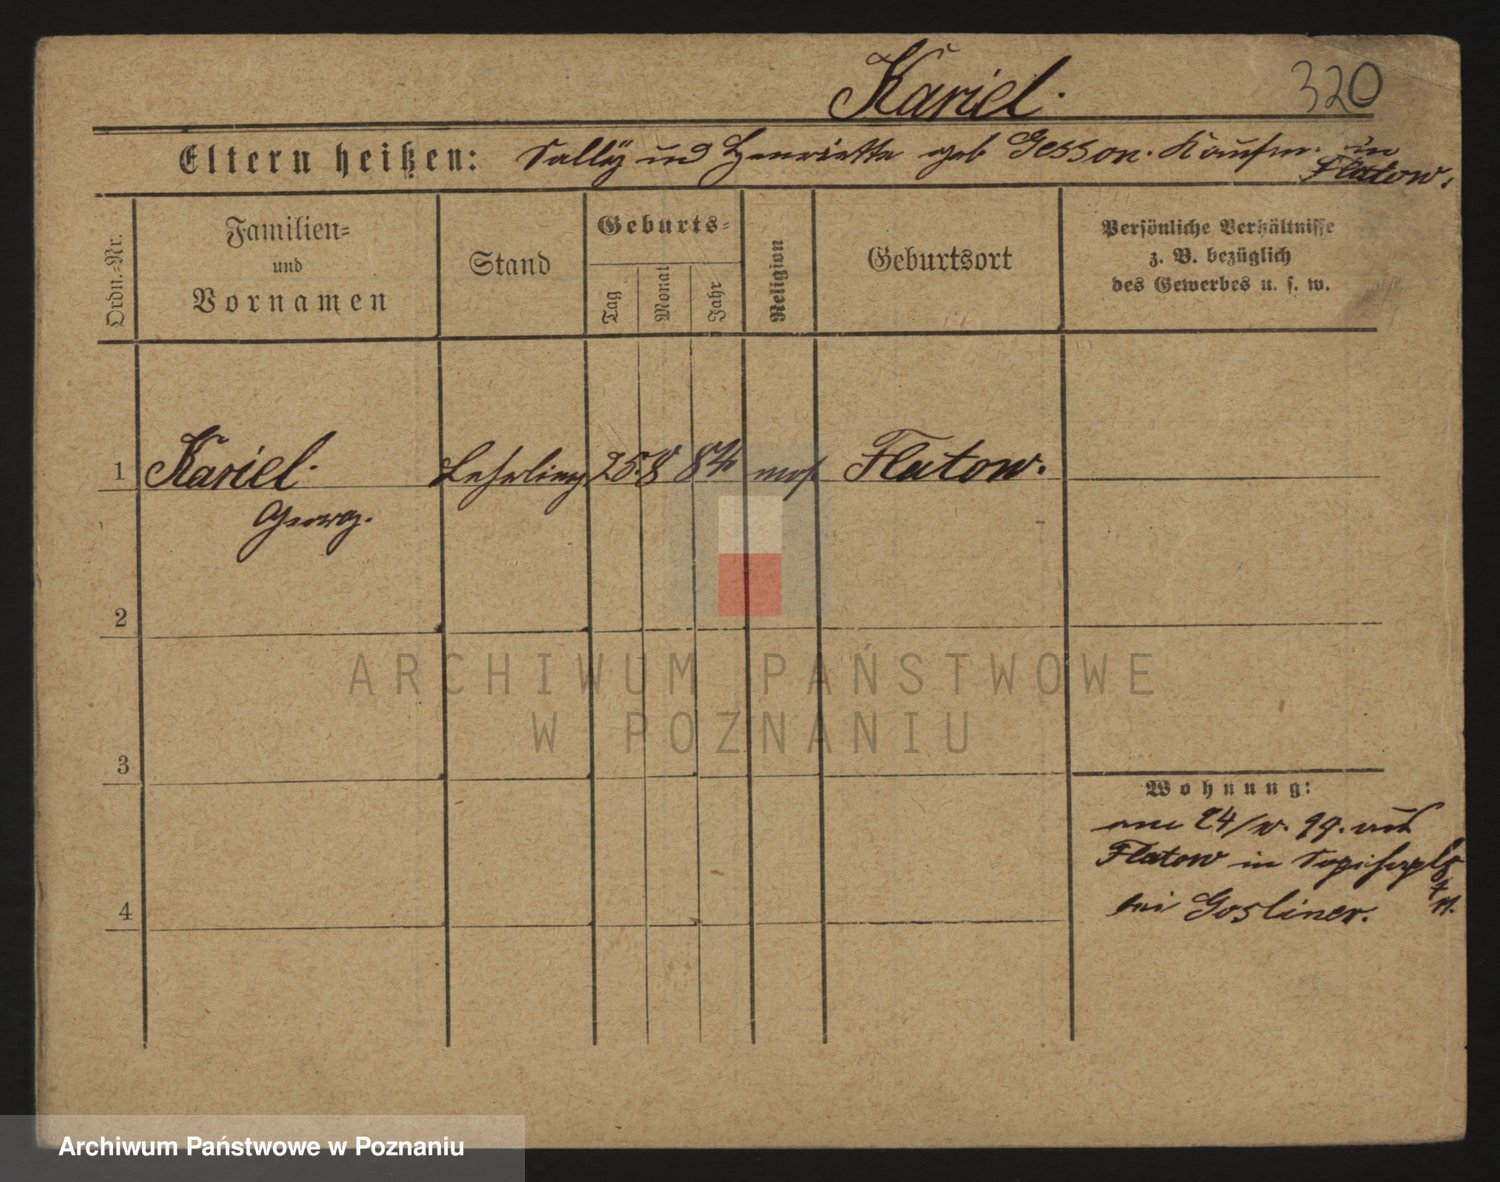 Kariel.
320
Eltern heißen: Sally und Henriette geb Gesson. Kaufm. in
Flatow.
Ordn.-Nr.
Familien-
und
Vornamen
Stand
Geburts-
Tag
Monat
Jahr
Religion
Geburtsort
Persönliche Verhältnisse
z. B. bezüglich
des Gewerbes u. s. w.
1 Kariel. Lehrling 25. 8 84 mos. Flatow.
Georg.
2
3
4
Wohnung:
am 24/ 99. aus
Flatow in Sapiehaplatz
bei Gosliner.
ARCHIWUM PAŃSTWOWE
W POZNANIU
Archiwum Państwowe w Poznaniu